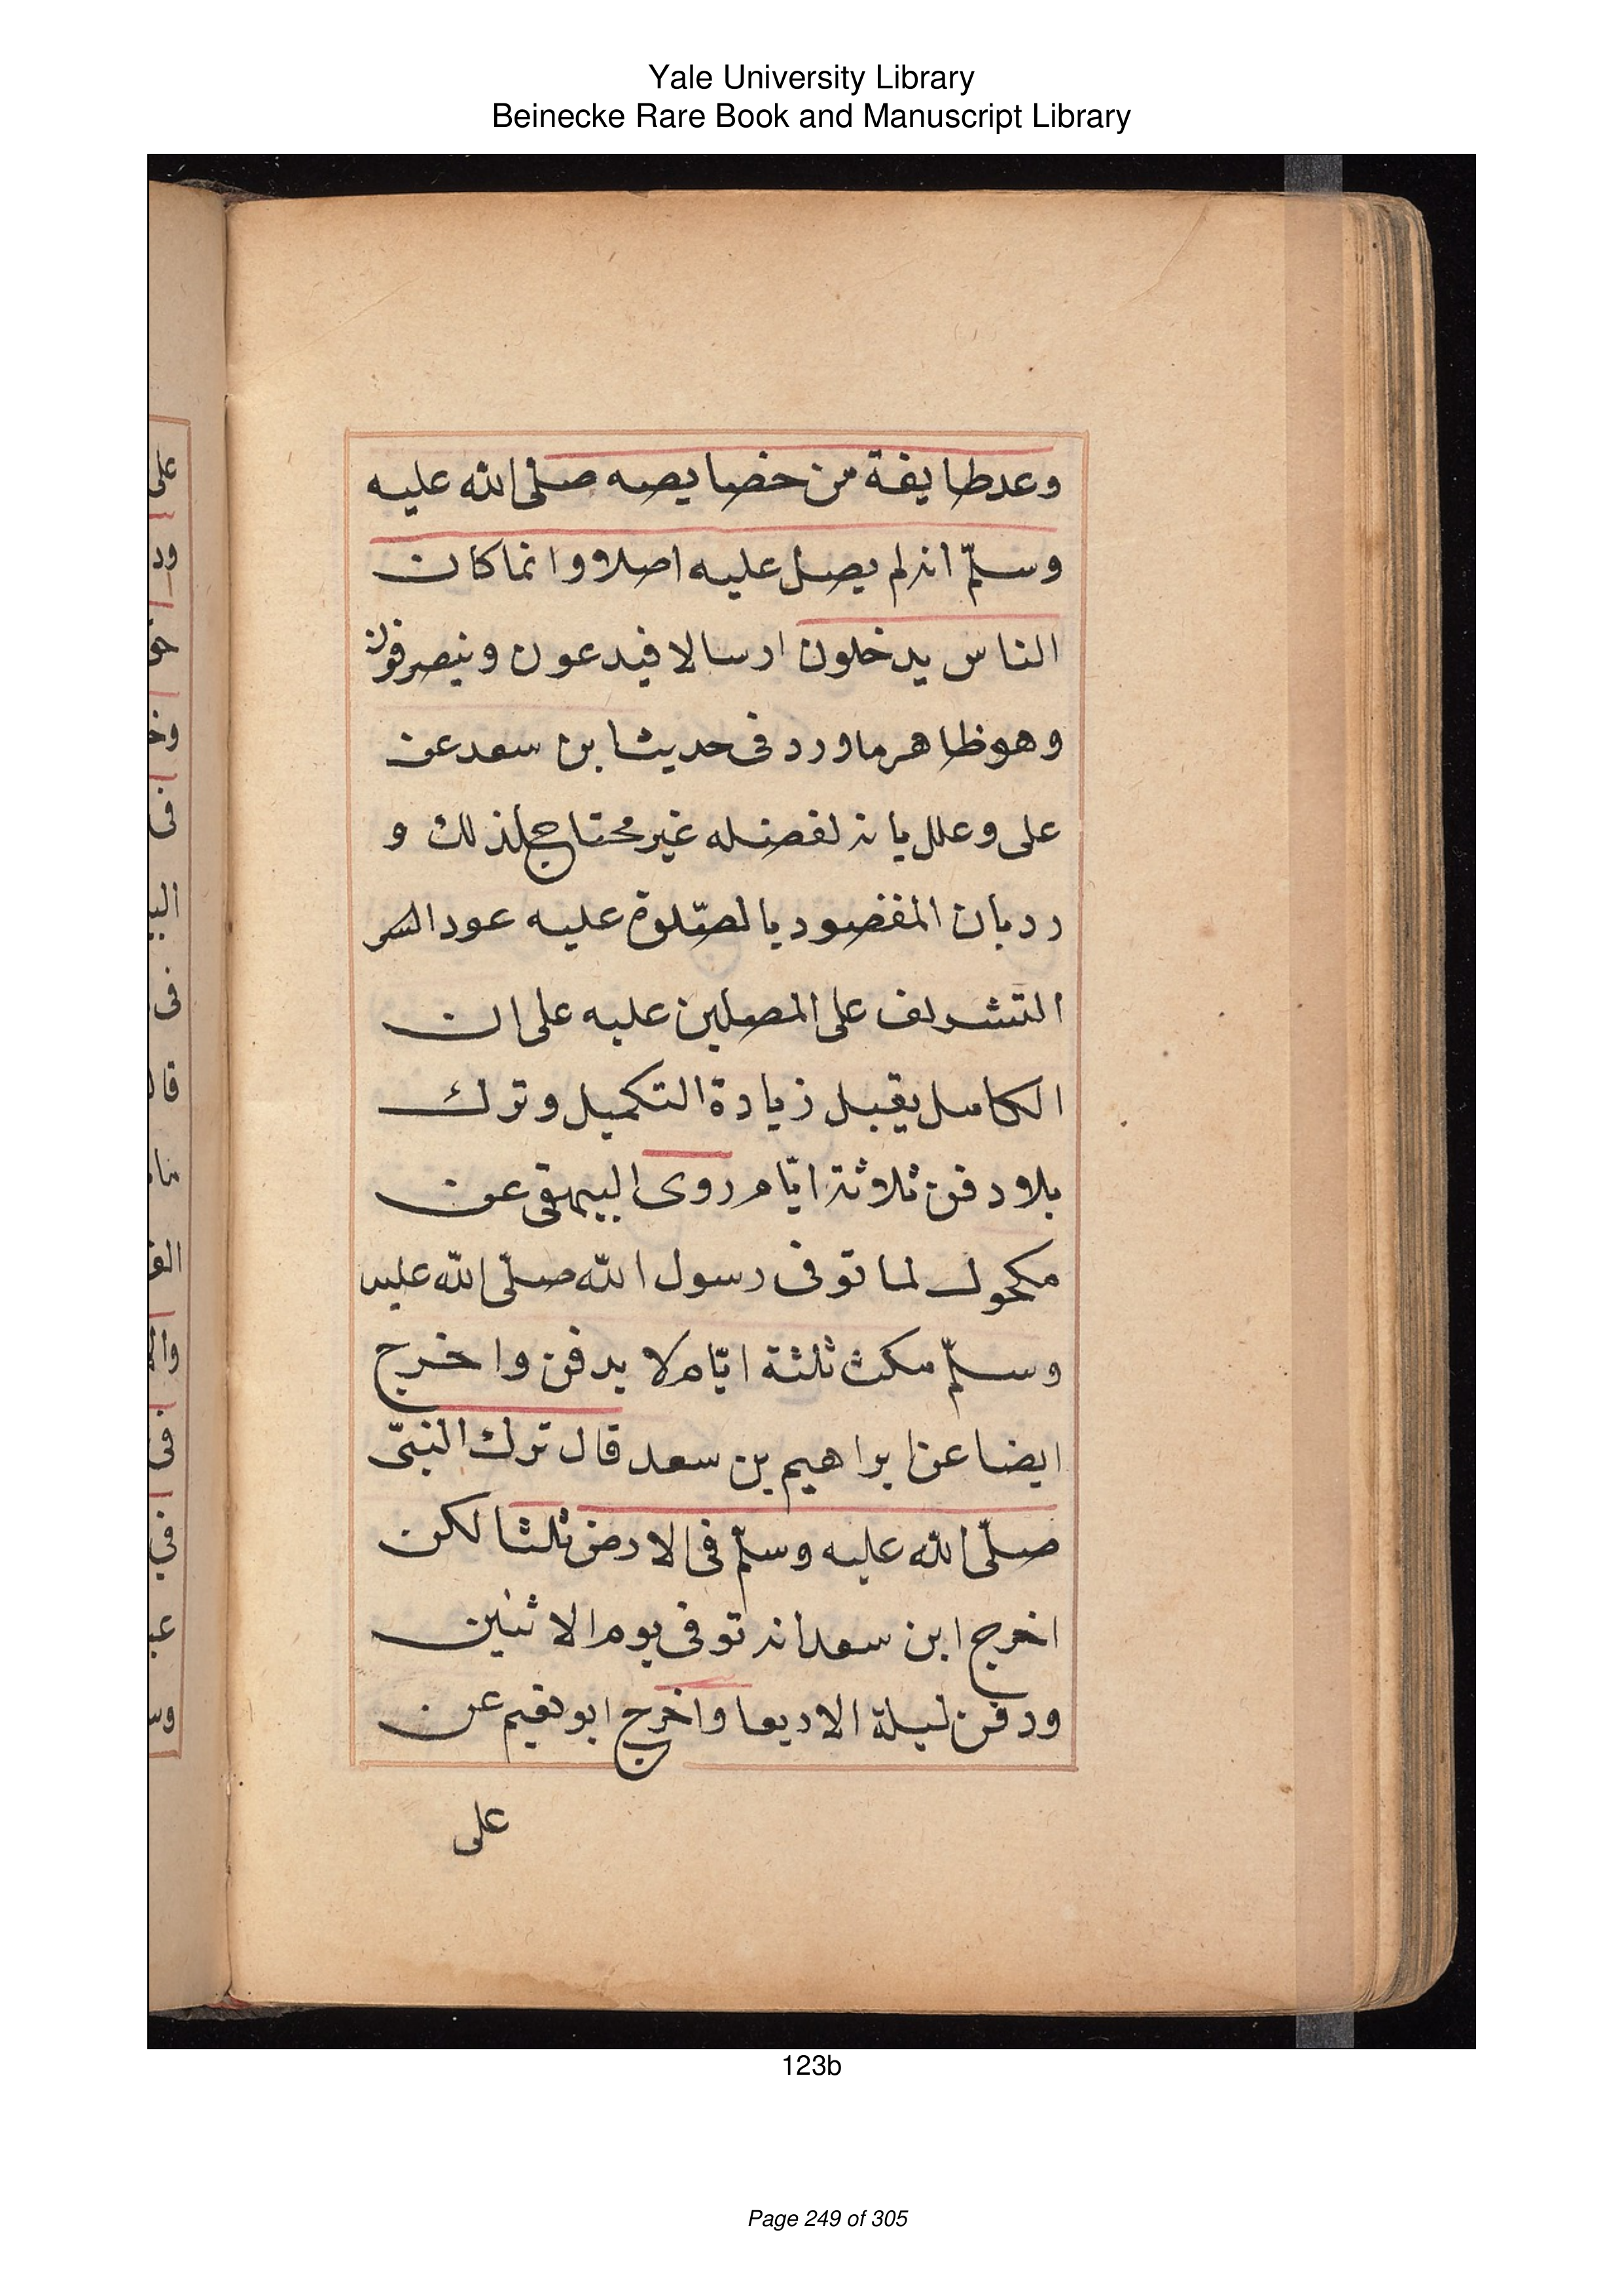 Yale University Library
Beinecke Rare Book and Manuscript Library
وعد طايفة من خصايصه صلى الله عليه
وسلّم انه لم يصل عليه اصلا وانما كان
الناس يدخلون ارسالا فيدعون وينصرفون
وهو ظاهر ما ورد فى حديث ابن سعد عن
على وعلل بانه لفضله غير محتاج لذلك و
رد بان المقصود بالصّلوة عليه عود السر
التشريف على المصلين عليه على ان
الكامل يقبل زيادة التكميل وترك
بلا دفن ثلاثة ايّام روى البيهقى عن
مكحول لما توفى رسول الله صلّى الله عليه
وسلّم مكث ثلثة ايّام لا يدفن واخرج
ايضا عن ابراهيم بن سعد قال ترك النبىّ
صلّى الله عليه وسلّم فى الارض ثلثا لكن
اخرج ابن سعد انه توفى يوم الاثنين
ودفن ليلة الاربعا واخرج ابو نعيم عن
على
123b
Page 249 of 305